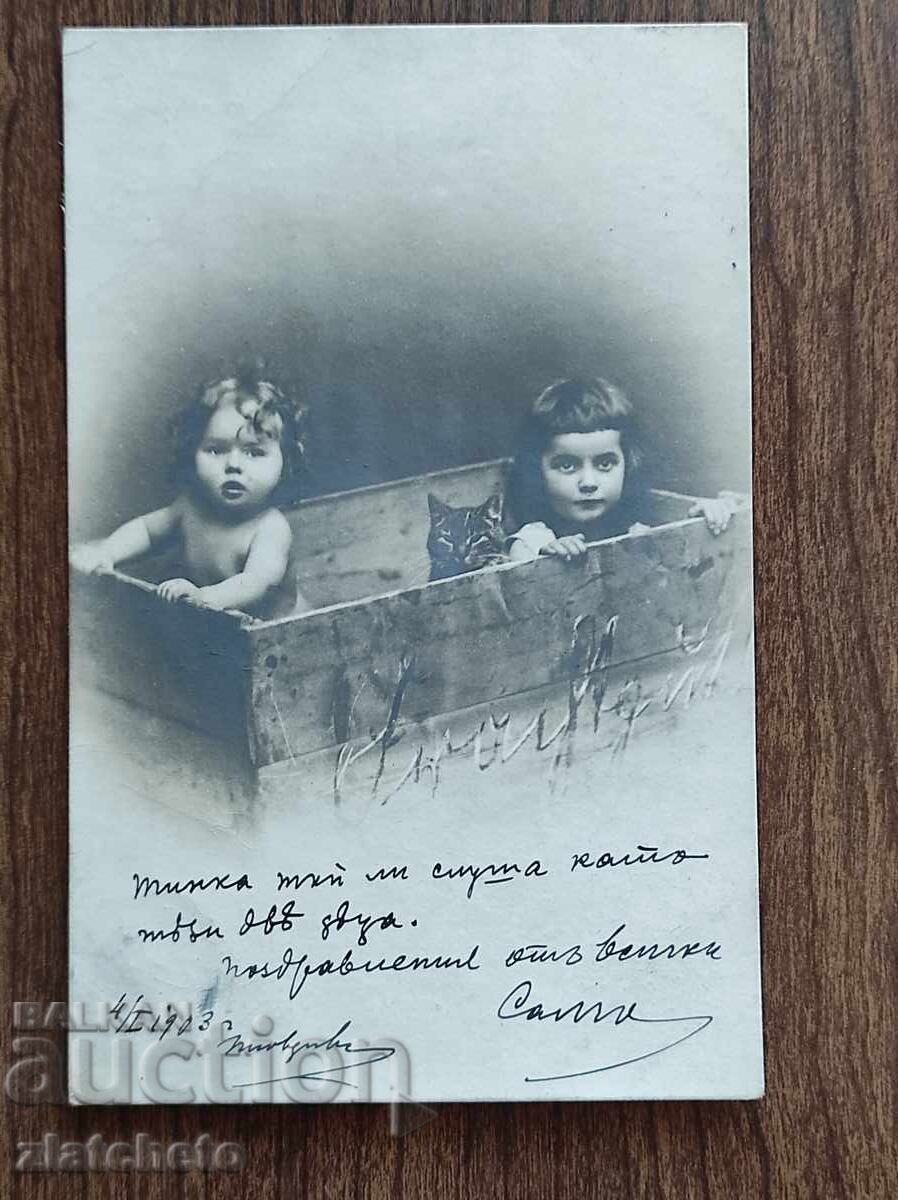 тинка тъй ли слуша като
тѣзи двѣ дѣца.
поздравления отъ всички
4/I 1903 г.
Пловдивъ
BALKAN
auction
zlatcheto